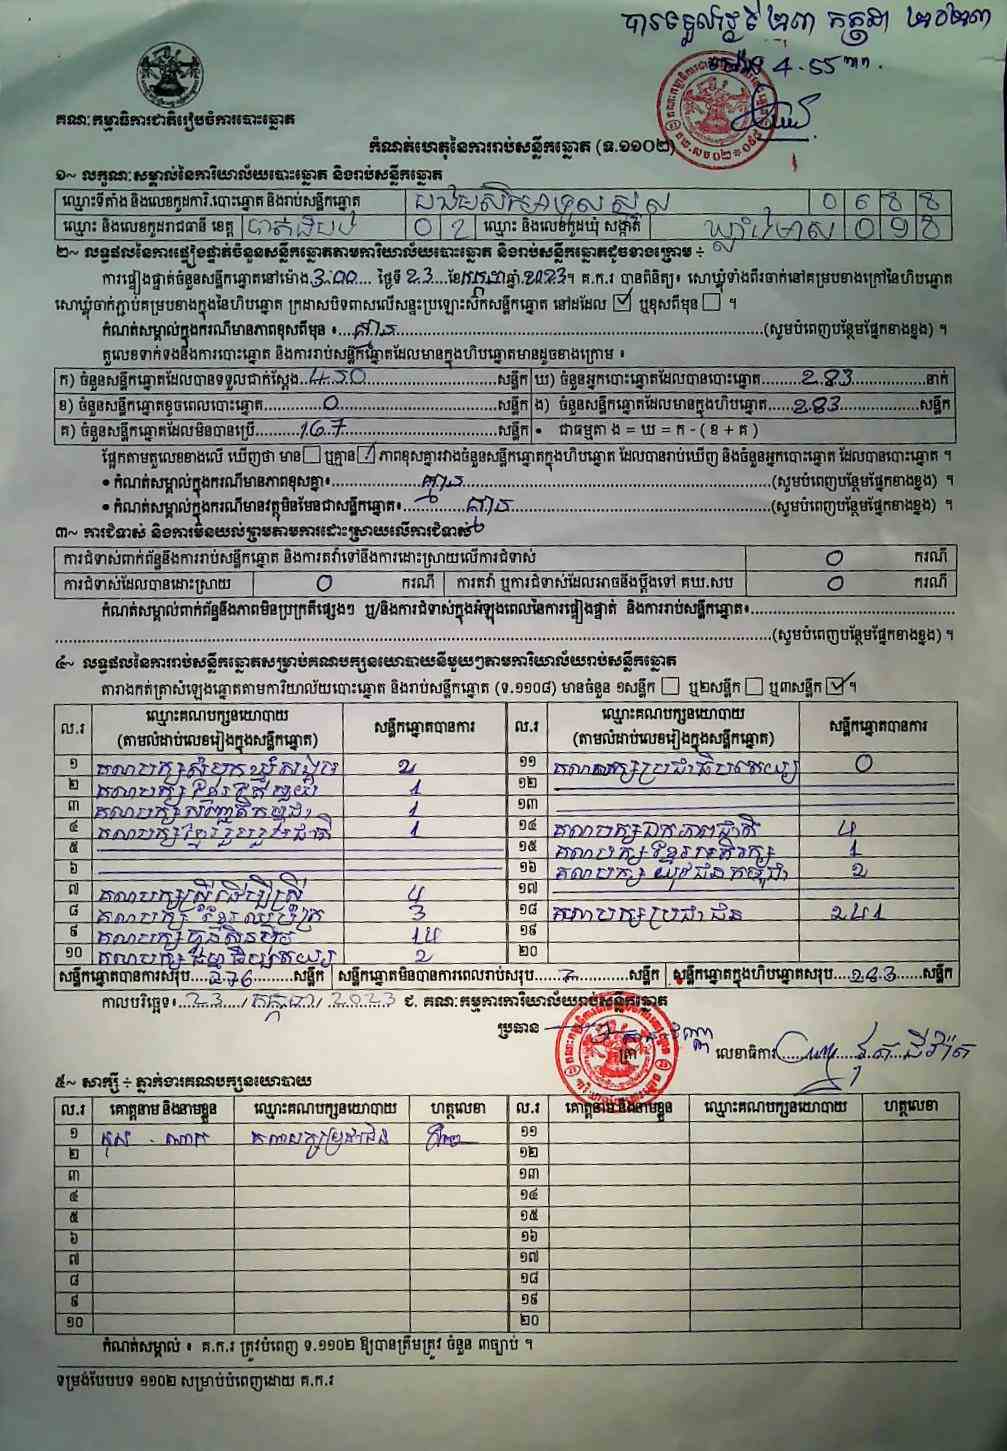 បានទទួលថ្ងៃទី ២៣ កក្កដា ២០២៣
ម៉ោង 4.55 nn.
គណៈកម្មាធិការជាតិរៀបចំការបោះឆ្នោត
កំណត់ហេតុនៃការរាប់សន្លឹកឆ្នោត (ទ.១១០២)
១~ លក្ខណៈសម្គាល់នៃការិយាល័យបោះឆ្នោត និងរាប់សន្លឹកឆ្នោត
ឈ្មោះទីតាំង និងលេខកូដការិ.បោះឆ្នោត និងរាប់សន្លឹកឆ្នោត 0 6 8 8
ឈ្មោះ និងលេខកូដរាជធានី ខេត្ត បាត់ដំបង 0 2 ឈ្មោះ និងលេខកូដឃុំ សង្កាត់ 0 9 8
២~ លទ្ធផលនៃការផ្ទៀងផ្ទាត់ចំនួនសន្លឹកឆ្នោតតាមការិយាល័យបោះឆ្នោត និងរាប់សន្លឹកឆ្នោតដូចខាងក្រោម ៖
ការផ្ទៀងផ្ទាត់ចំនួនសន្លឹកឆ្នោតនៅម៉ោង 3:00 ថ្ងៃទី 23 ខែ កក្កដា ឆ្នាំ 2023។ គ.ក.រ បានពិនិត្យ៖ សោឃ្លុំទាំងពីរចាក់នៅគម្របខាងក្រៅនៃហិបឆ្នោត
សោឃ្លុំចាក់ភ្ជាប់គម្របខាងក្នុងនៃហិបឆ្នោត ក្រដាសបិទពាសលើសន្ទះប្រឡោះស៊កសន្លឹកឆ្នោត នៅដដែល ☑ ឬខុសពីមុន ☐ ។
កំណត់សម្គាល់ក្នុងករណីមានភាពខុសពីមុន ៖ គ្មាន (សូមបំពេញបន្ថែមផ្នែកខាងខ្នង) ។
តួលេខទាក់ទងនឹងការបោះឆ្នោត និងការរាប់សន្លឹកឆ្នោតដែលមានក្នុងហិបឆ្នោតមានដូចខាងក្រោម ៖
ក) ចំនួនសន្លឹកឆ្នោតដែលបានទទួលជាក់ស្តែង 450 សន្លឹក ឃ) ចំនួនអ្នកបោះឆ្នោតដែលបានបោះឆ្នោត 283 នាក់
ខ) ចំនួនសន្លឹកឆ្នោតខូចពេលបោះឆ្នោត 0 សន្លឹក ង) ចំនួនសន្លឹកឆ្នោតដែលមានក្នុងហិបឆ្នោត 283 សន្លឹក
គ) ចំនួនសន្លឹកឆ្នោតដែលមិនបានប្រើ 167 សន្លឹក • ជាធម្មតា ង = ឃ = ក - ( ខ + គ )
ផ្អែកតាមតួលេខខាងលើ ឃើញថា មាន ☐ ឬគ្មាន ☑ ភាពខុសគ្នារវាងចំនួនសន្លឹកឆ្នោតក្នុងហិបឆ្នោត ដែលបានរាប់ឃើញ និងចំនួនអ្នកបោះឆ្នោត ដែលបានបោះឆ្នោត ។
• កំណត់សម្គាល់ក្នុងករណីមានភាពខុសគ្នា៖ គ្មាន (សូមបំពេញបន្ថែមផ្នែកខាងខ្នង) ។
• កំណត់សម្គាល់ក្នុងករណីមានវត្ថុមិនមែនជាសន្លឹកឆ្នោត៖ គ្មាន (សូមបំពេញបន្ថែមផ្នែកខាងខ្នង) ។
៣~ ការជំទាស់ និងការមិនយល់ព្រមតាមការដោះស្រាយលើការជំទាស់
ការជំទាស់ពាក់ព័ន្ធនឹងការរាប់សន្លឹកឆ្នោត និងការតវ៉ាទៅនឹងការដោះស្រាយលើការជំទាស់ 0 ករណី
ការជំទាស់ដែលបានដោះស្រាយ 0 ករណី ការតវ៉ា ឬការជំទាស់ដែលអាចនឹងប្តឹងទៅ គឃ.សប 0 ករណី
កំណត់សម្គាល់ពាក់ព័ន្ធនឹងភាពមិនប្រក្រតីផ្សេងៗ ឬ/និងការជំទាស់ក្នុងអំឡុងពេលនៃការផ្ទៀងផ្ទាត់ និងការរាប់សន្លឹកឆ្នោត៖
(សូមបំពេញបន្ថែមផ្នែកខាងខ្នង) ។
៤~ លទ្ធផលនៃការរាប់សន្លឹកឆ្នោតសម្រាប់គណបក្សនយោបាយនីមួយៗតាមការិយាល័យរាប់សន្លឹកឆ្នោត
តារាងកត់ត្រាសំឡេងឆ្នោតតាមការិយាល័យបោះឆ្នោត និងរាប់សន្លឹកឆ្នោត (ទ.១១០៨) មានចំនួន ១សន្លឹក ☐ ឬ២សន្លឹក ☐ ឬ៣សន្លឹក ☑ ។
ល.រ ឈ្មោះគណបក្សនយោបាយ (តាមលំដាប់លេខរៀងក្នុងសន្លឹកឆ្នោត) សន្លឹកឆ្នោតបានការ ល.រ ឈ្មោះគណបក្សនយោបាយ (តាមលំដាប់លេខរៀងក្នុងសន្លឹកឆ្នោត) សន្លឹកឆ្នោតបានការ
១ គណបក្សសំបុកឃ្មុំសង្គម 2 ១១ គណបក្សប្រជាធិបតេយ្យ 0
២ គណបក្ស 1 ១២
៣ គណបក្ស 1 ១៣
៤ គណបក្សខ្មែររួបរួមជាតិ 1 ១៤ គណបក្សឯកភាពជាតិ 4
៥ ១៥ គណបក្សខ្មែរអភិរក្ស 1
៦ ១៦ គណបក្សយុវជនកម្ពុជា 2
៧ គណបក្សស្រីដើម្បីស្រី 4 ១៧
៨ គណបក្ស 3 ១៨ គណបក្សប្រជាជន 241
៩ គណបក្សហ៊្វុនស៊ិនប៉ិច 14 ១៩
១០ គណបក្ស 2 ២០
សន្លឹកឆ្នោតបានការសរុប 276 សន្លឹក សន្លឹកឆ្នោតមិនបានការពេលរាប់សរុប 7 សន្លឹក សន្លឹកឆ្នោតក្នុងហិបឆ្នោតសរុប 283 សន្លឹក
កាលបរិច្ឆេទ៖ 23 / កក្កដា / 2023 ជ. គណៈកម្មការការិយាល័យរាប់សន្លឹកឆ្នោត
ប្រធាន លេខាធិការ
៥~ សាក្សី ÷ ភ្នាក់ងារគណបក្សនយោបាយ
ល.រ គោត្តនាម និងនាមខ្លួន ឈ្មោះគណបក្សនយោបាយ ហត្ថលេខា ល.រ គោត្តនាម និងនាមខ្លួន ឈ្មោះគណបក្សនយោបាយ ហត្ថលេខា
១ គណបក្សប្រជាជន ១១
២ ១២
៣ ១៣
៤ ១៤
៥ ១៥
៦ ១៦
៧ ១៧
៨ ១៨
៩ ១៩
១០ ២០
កំណត់សម្គាល់ ៖ គ.ក.រ ត្រូវបំពេញ ទ.១១០២ ឱ្យបានត្រឹមត្រូវ ចំនួន ៣ច្បាប់ ។
ទម្រង់បែបបទ ១១០២ សម្រាប់បំពេញដោយ គ.ក.រ